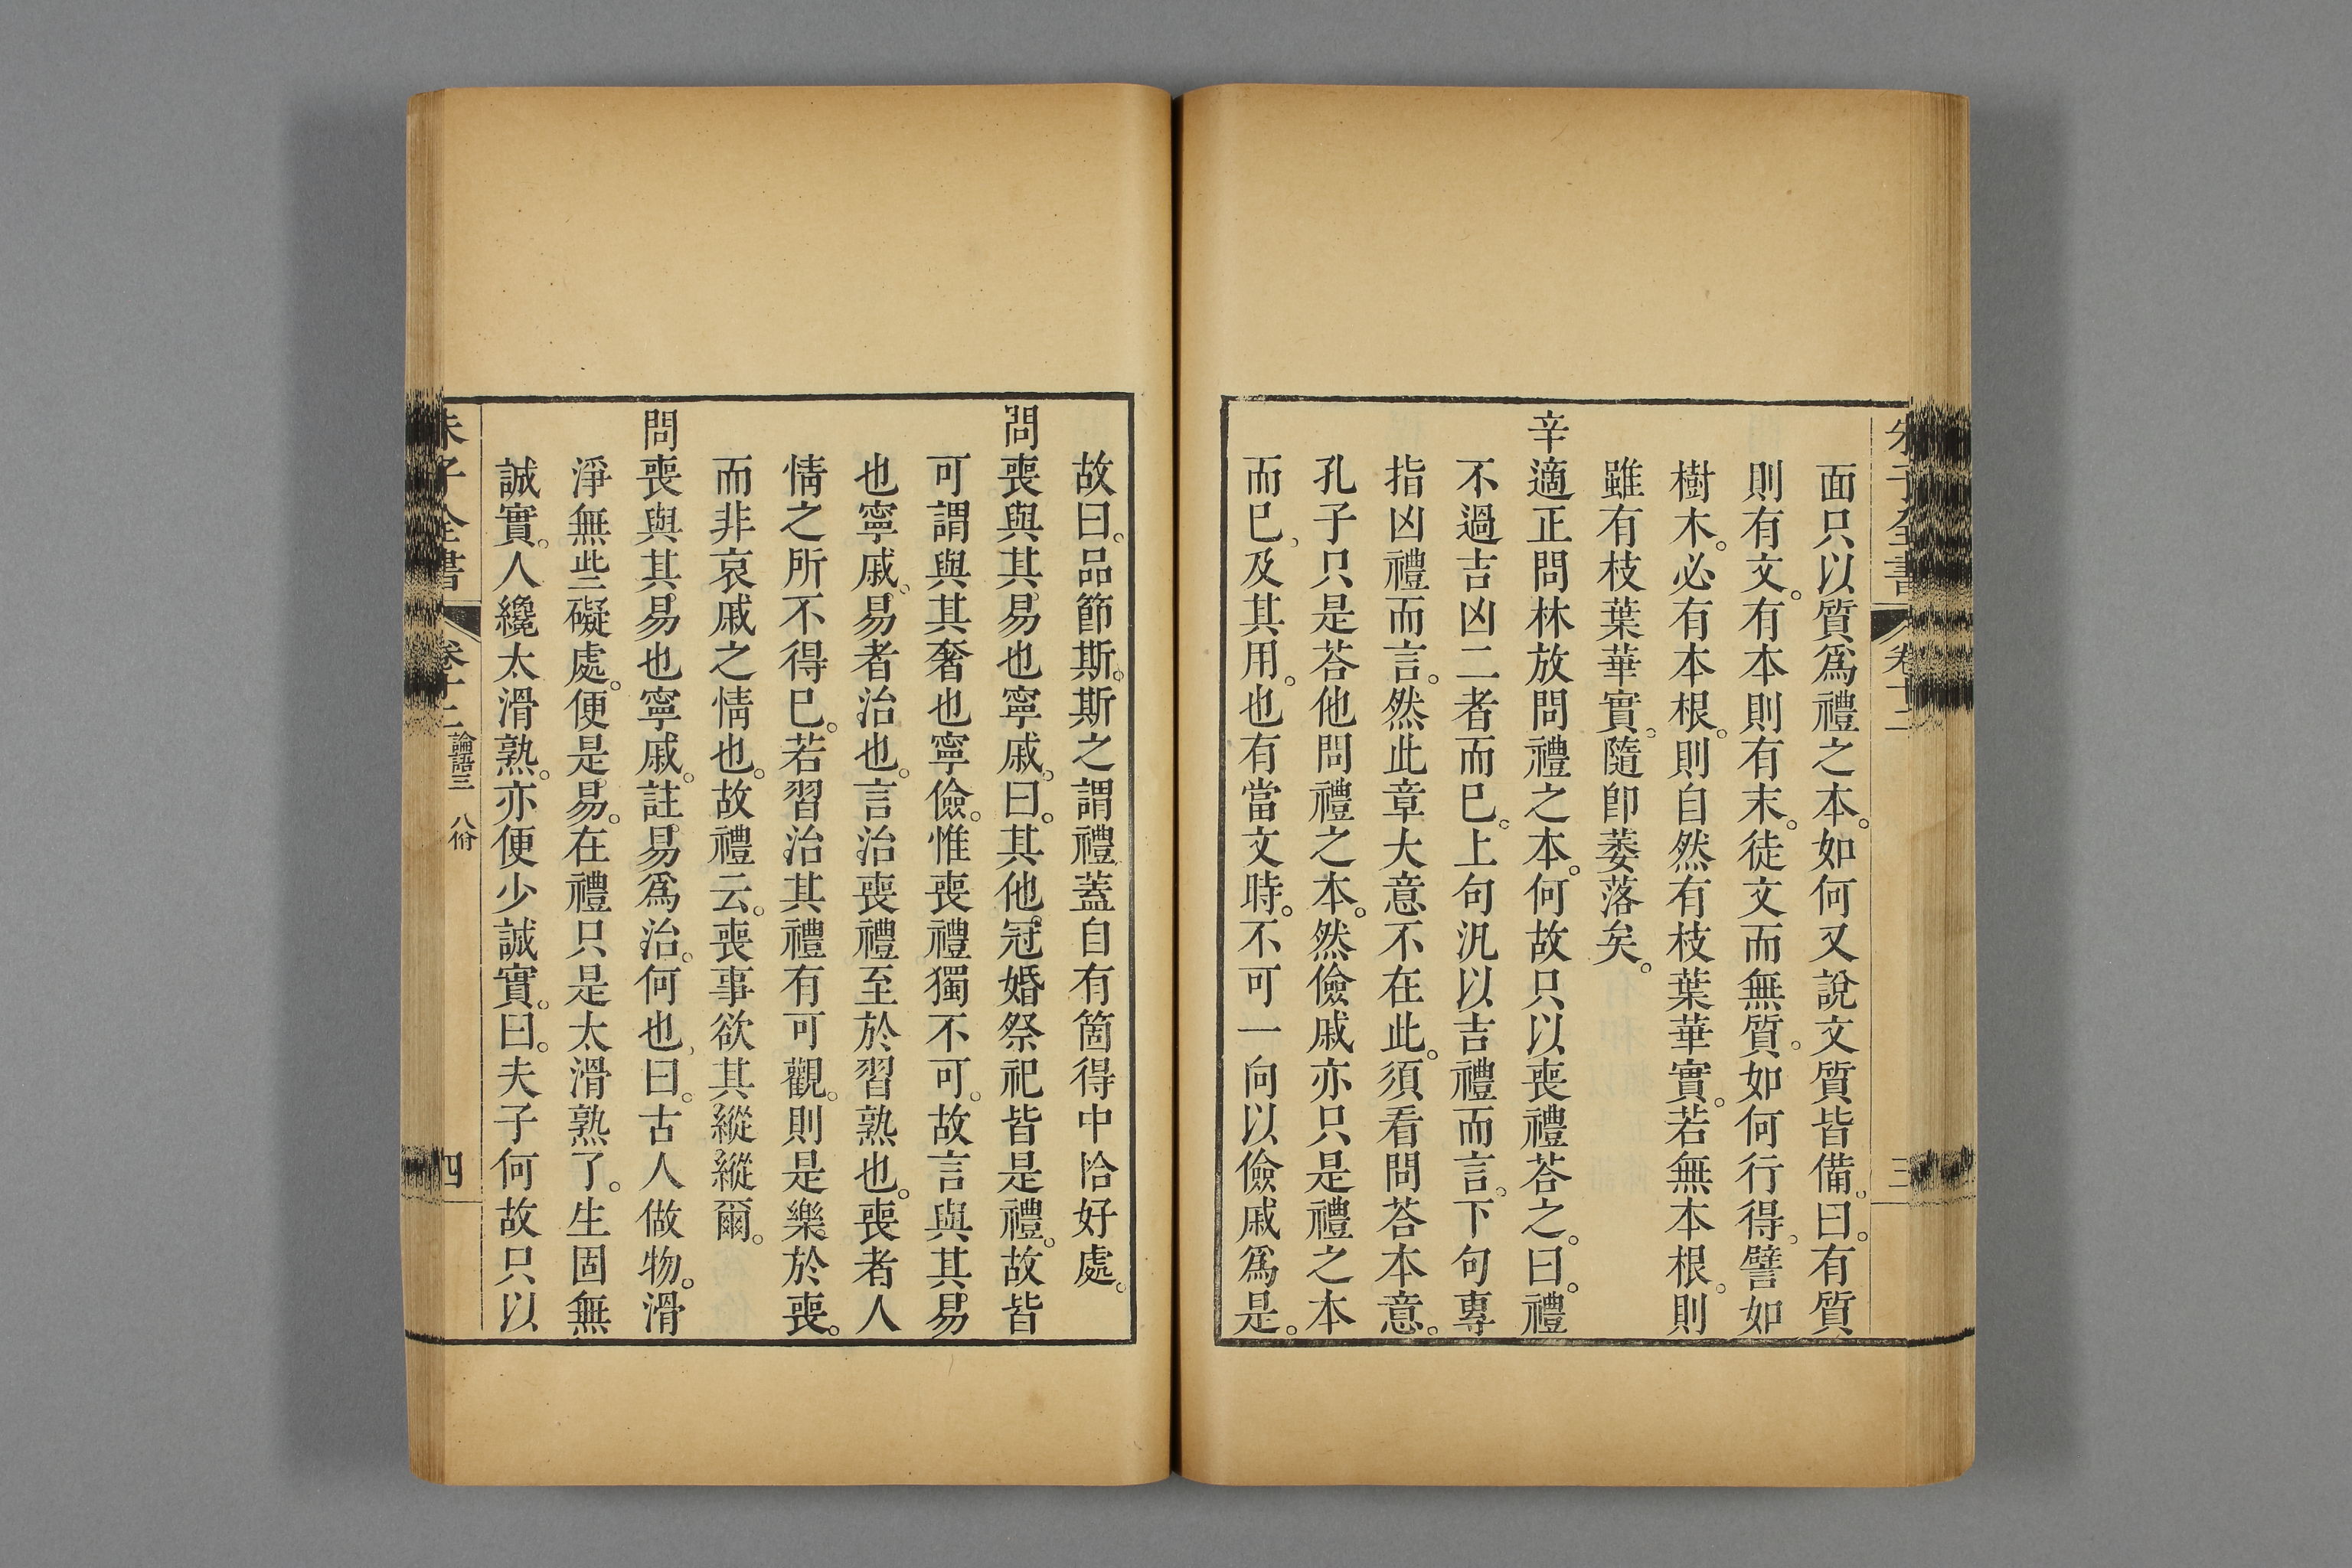 朱子全書 卷十二 三
面只以質爲禮之本。如何又說文質皆備。曰。有質
則有文。有本則有末。徒文而無質。如何行得。譬如
樹木。必有本根。則自然有枝葉華實。若無本根。則
雖有枝葉華實。隨卽萎落矣。
辛適正問林放問禮之本。何故只以喪禮荅之。曰。禮
不過吉凶二者而已。上句汎以吉禮而言。下句專
指凶禮而言。然此章大意不在此。須看問荅本意。
孔子只是荅他問禮之本。然儉戚亦只是禮之本
而已。及其用。也有當文時。不可一向以儉戚爲是。
故曰。品節斯。斯之謂禮。蓋自有箇得中恰好處。
問喪與其易也寧戚。曰。其他冠婚祭祀皆是禮。故皆
可謂與其奢也寧儉。惟喪禮獨不可。故言與其易
也寧戚。易者治也。言治喪禮至於習熟也。喪者人
情之所不得已。若習治其禮有可觀。則是樂於喪。
而非哀戚之情也。故禮云。喪事欲其縱縱爾。
問喪與其易也寧戚。註易爲治。何也。曰。古人做物。滑
淨無些礙處。便是易。在禮只是太滑熟了。生固無
誠實。人纔太滑熟。亦便少誠實。曰。夫子何故只以
朱子全書 卷十二 論語三 八佾 四